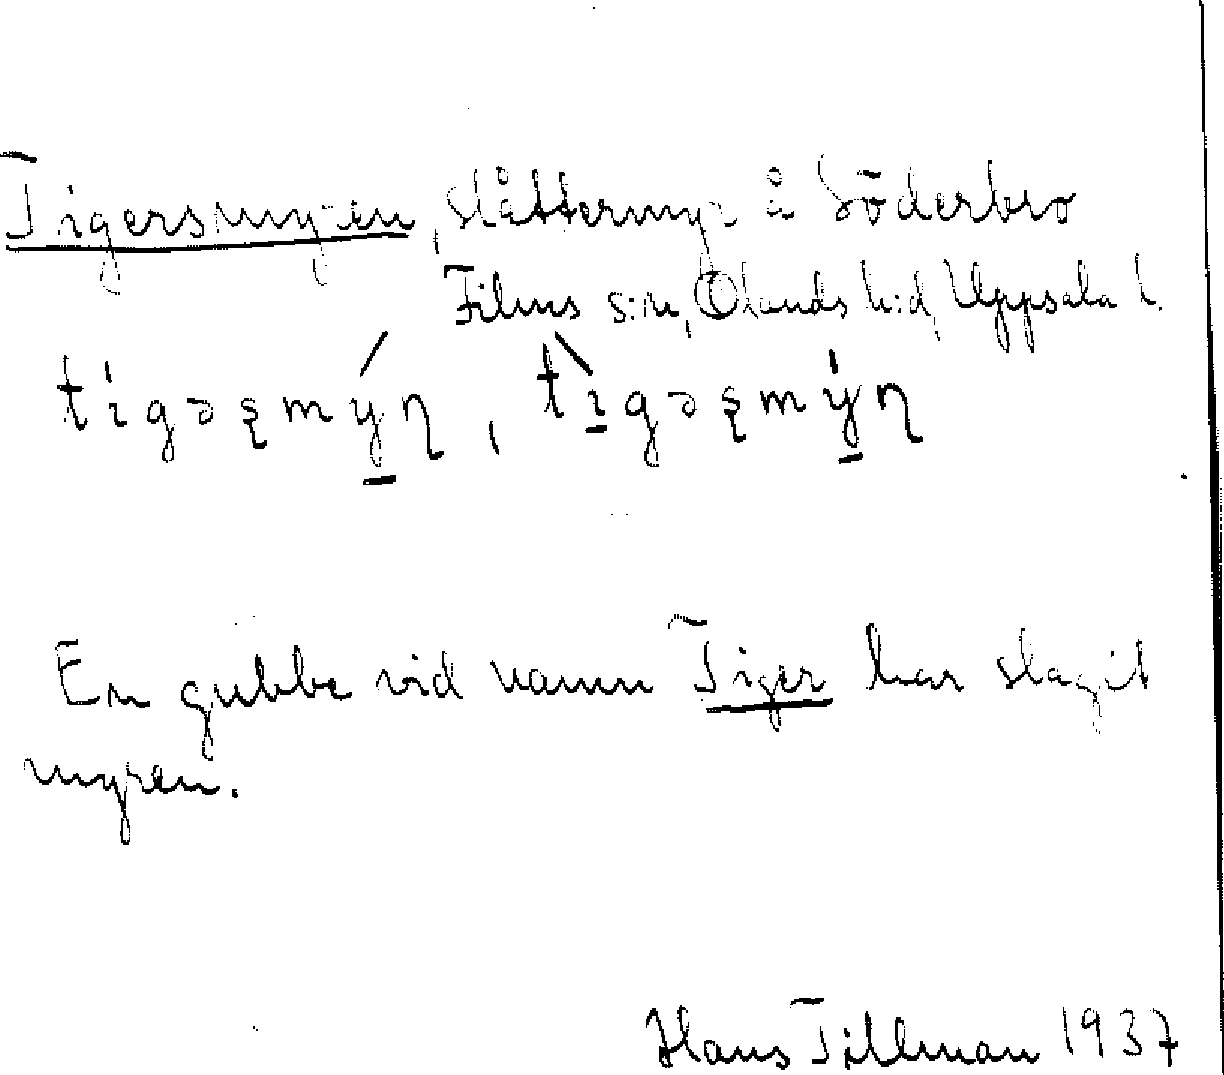 Tigersmyren, slåttermyr å Söderbro
Films s:n, Olands h:d, Uppsala l.
tígəʂmýɳ, tìgəʂmýɳ
En gubbe vid namn Tiger har slagit
myren.
Hans Tillman 1937